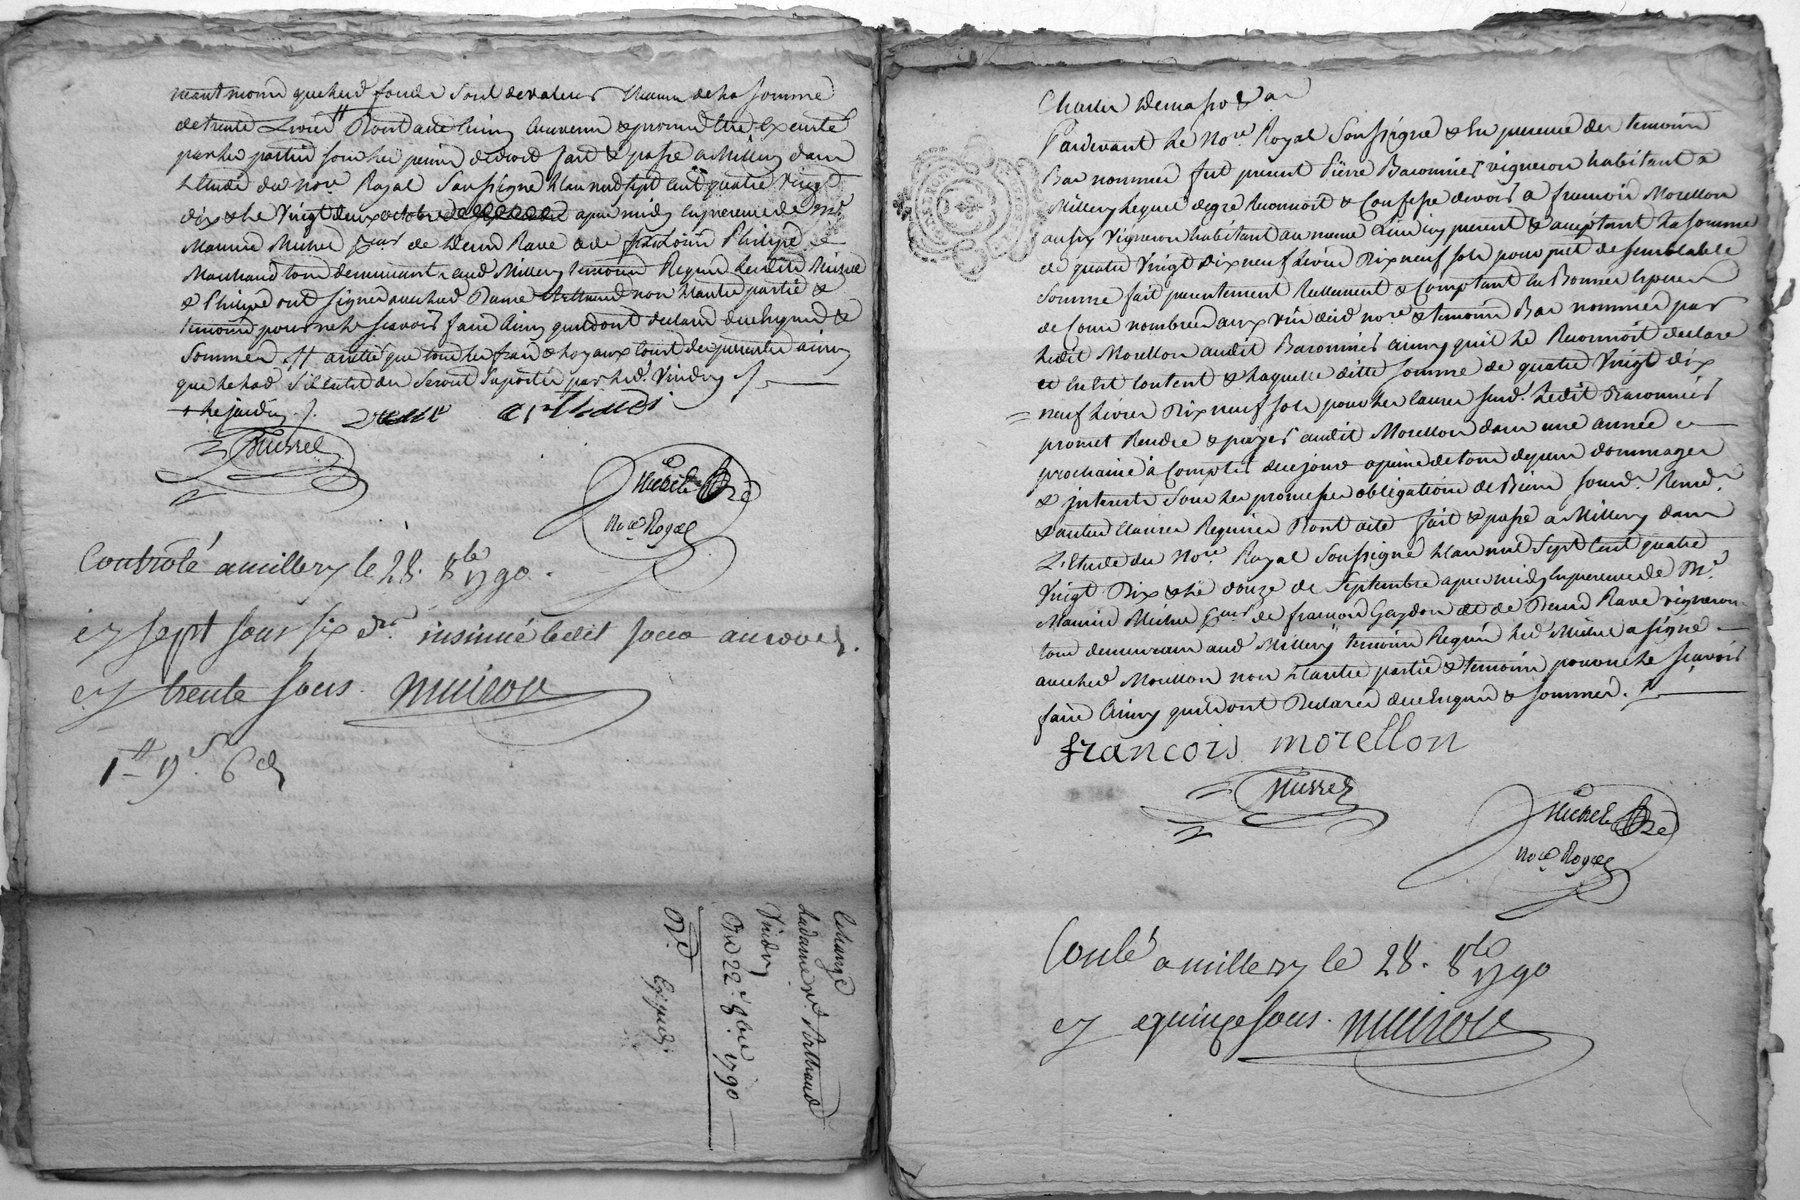 neantmoins que lesd. fonds sont de valeur chacun de la somme
de trente Livres tt Dont acte ainsy convenu & promis être executé
par les parties sous les peines de droit fait & passé a Millery dans
L'Etude du Nore. Royal Soussigné L'an mil sept cent quatre vingt
dix & le vingt deux octobre apres midy En presence de Mr.
Maurice Mussel de Denis Rave Philippe
Marchand tous demeurants aud. Millery temoins Requis lesdits Mussel
& Philippe ont signé avec lad. Dame Arthaud non L'autre partie &
temoins pour ne le scavoir faire ainsy qu'il dont declaré de ce Enquis &
Sommés. // arreté que tous les frais & loyaux couts des presentes ainsy
que le lad. Seront Suportés par led. Vindry /.
+ le jardin /.
Mussel
Michel Ozé
Nore. Royal
Controlé a millery le 28. 8bre 1790.
en sept sous six drs. insinué ledit jour au rover.
en trente sous. muiron
1tt 17s. 6d
Echange
Ladame ve. Arthaud
Vindry
Du 22e. 8bre 1790
Exped.
Pardevant Le Nore. Royal Soussigné & En presence des temoins
Bas nommés fut present Pierre Baronnier vigneron habitant a
Millery Lequel de gré Reconnoit & Confesse devoir a francois Morellon
aussy vigneron habitant au meme Lieu icy present & acceptant La somme
de quatre vingt dix neuf Livres Dix neuf sols pour pret de semblable
somme fait presentement Reellement & Comptant En Bonnes Especes
de Cours nombrées aux vûe dud. nore. & temoins Bas nommés par
Ledit Morellon audit Baronnier ainsy qu'il le Reconnoit declare
et En Est Content & Laquelle ditte somme de quatre vingt dix
neuf Livres Dix neuf sols pour les causes susd. Ledit Baronnier
promet Rendre & payer audit Morellon dans une année
prochaine à Compter de ce jour a peine de tous depens dommages
& interets sous les promesses obligations de Biens soumd. Renond.
& autres Clauses Requises Dont acte fait & passé a Millery dans
L'Etude du Nore. Royal Soussigné L'an mil Sept Cent quatre
Vingt Dix & le douze de Septembre apres midy En presence de Mr.
Maurice Mussel de francois Gaydon et de Denis Rave vigneron
tous demeurants aud. Millery temoins Requis led. Mussel a signé
avec led. Morellon non L'autre partie & temoins pour ne le scavoir
faire ainsy qu'il dont Declaré de ce Enquis & sommés. /.
francois morellon
Mussel
Michel Ozé
Nore. Royal
Conlé a millery le 28. 8bre 1790
en quinze sous. muiron